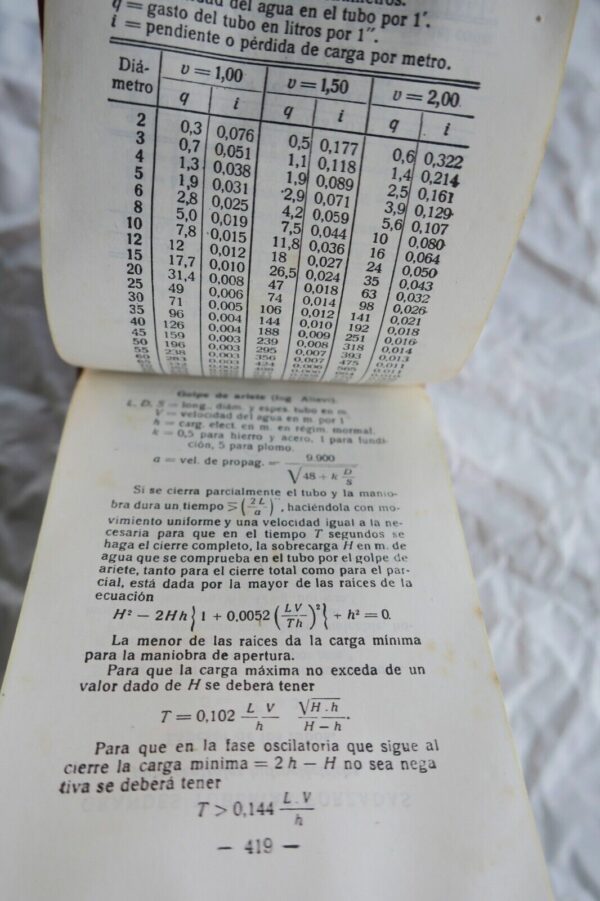 del agua en el tubo por 1'.
q = gasto del tubo en litros por 1".
i = pendiente o pérdida de carga por metro.
Diá-metro v = 1,00 v = 1,50 v = 2,00
q i q i q i
2 0,3 0,076 0,5 0,177 0,6 0,322
3 0,7 0,051 1,1 0,118 1,4 0,214
4 1,3 0,038 1,9 0,089 2,5 0,161
5 1,9 0,031 2,9 0,071 3,9 0,129
6 2,8 0,025 4,2 0,059 5,6 0,107
8 5,0 0,019 7,5 0,044 10 0,080
10 7,8 0,015 11,8 0,036 16 0,064
12 12 0,012 18 0,027 24 0,050
15 17,7 0,010 26,5 0,024 35 0,043
20 31,4 0,008 47 0,018 63 0,032
25 49 0,006 74 0,014 98 0,026
30 71 0,005 106 0,012 141 0,021
35 96 0,004 144 0,010 192 0,018
40 126 0,004 188 0,009 251 0,016
45 159 0,003 239 0,008 318 0,014
50 196 0,003 295 0,007 393 0,013
55 238 0,003 356 0,007 475 0,011
Golpe de ariete (Ing Allievi).
L. D. S = long., diám. y espes. tubo en m.
V = velocidad del agua en m. por 1"
h = carg. elect. en m. en régim. mormal.
k = 0,5 para hierro y acero, 1 para fundi-
ción, 5 para plomo.
a = vel. de propag. = 9.900 / √(48 + k D/S)
Si se cierra parcialmente el tubo y la manio-
bra dura un tiempo ⋝ (2 L / a)", haciéndola con mo-
vimiento uniforme y una velocidad igual a la ne-
cesaria para que en el tiempo T segundos se
haga el cierre completo, la sobrecarga H en m. de
agua que se comprueba en el tubo por el golpe de
ariete, tanto para el cierre total como para el par-
cial, está dada por la mayor de las raices de la
ecuación
H² − 2Hh { 1 + 0,0052 (L V / T h)² } + h² = 0.
La menor de las raices da la carga mínima
para la maniobra de apertura.
Para que la carga máxima no exceda de un
valor dado de H se deberá tener
T = 0,102 L V / h √H . h / H − h .
Para que en la fase oscilatoria que sigue al
cierre la carga minima = 2 h − H no sea nega
tiva se deberá tener
T > 0,144 L . V / h
— 419 —